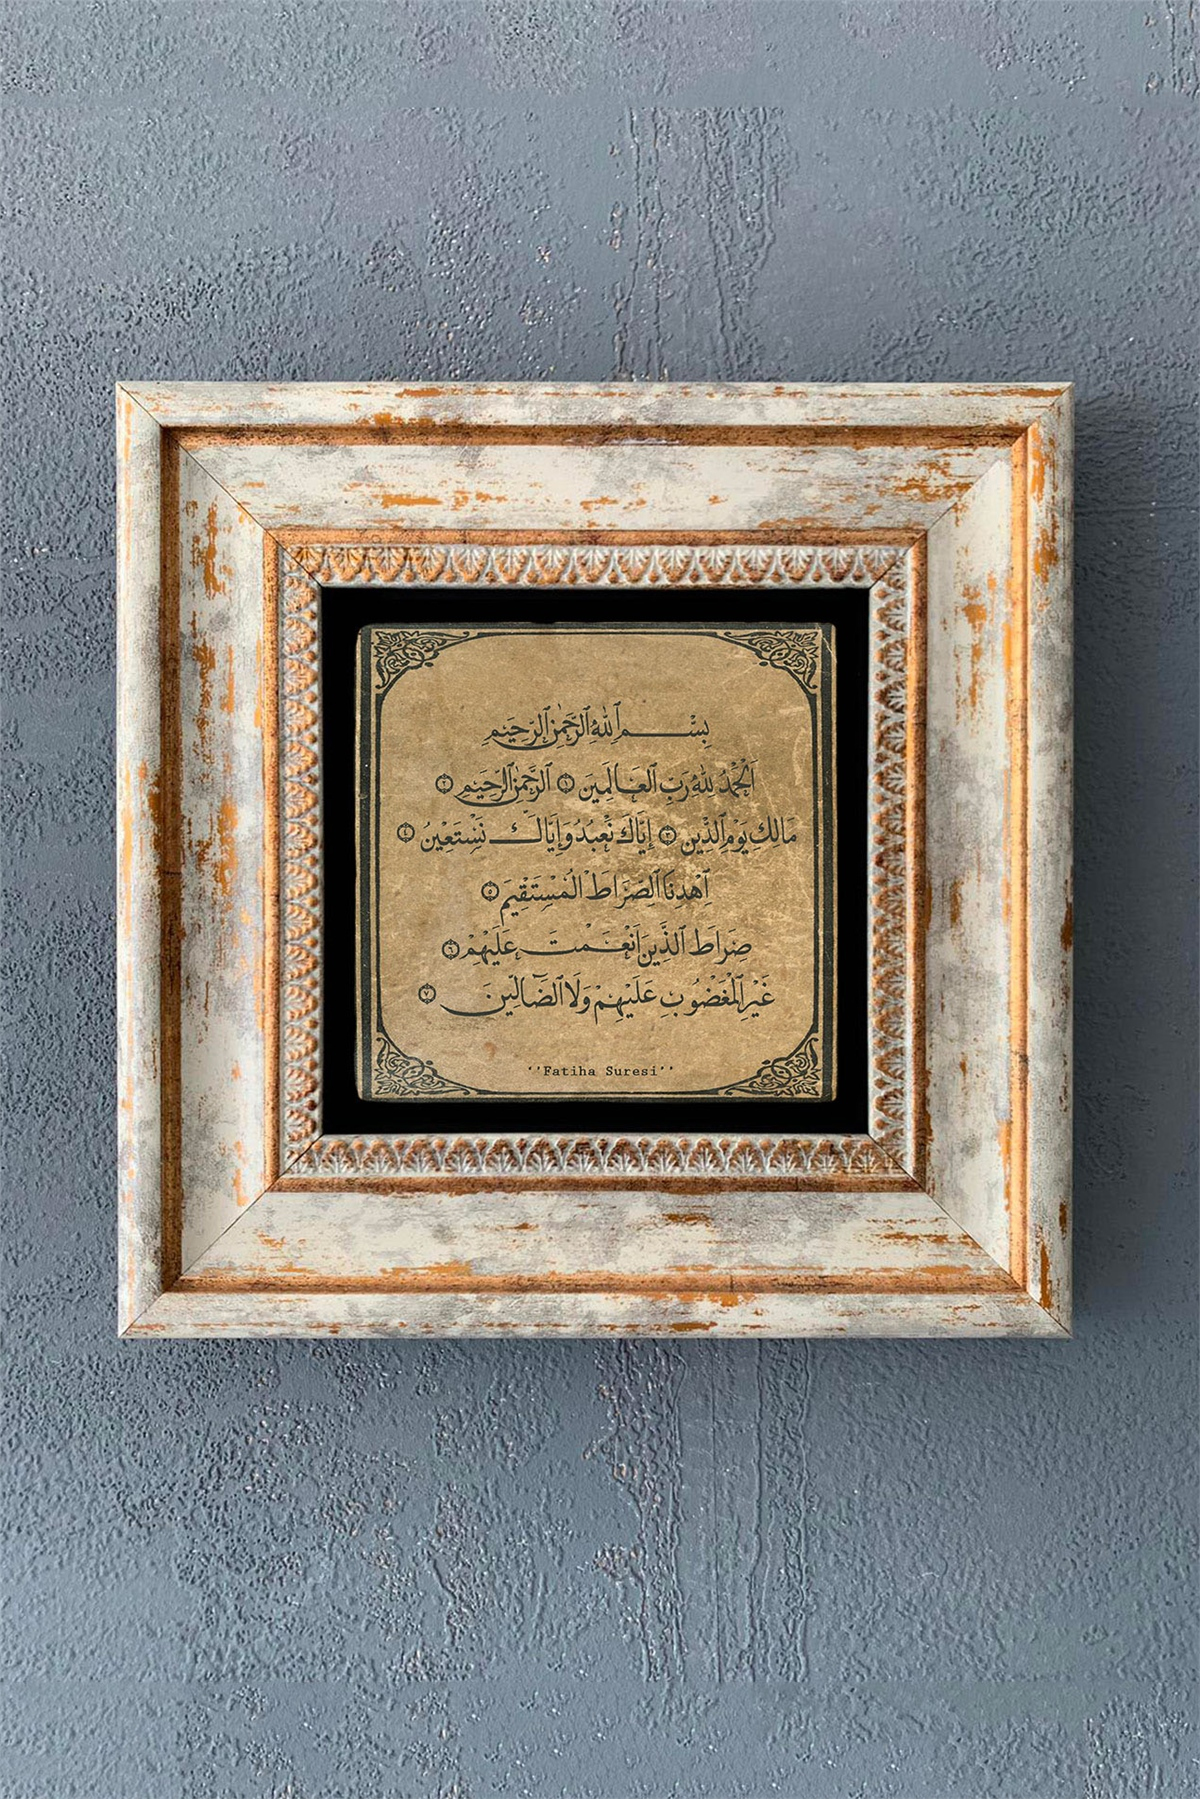 بِسْمِ ٱللّٰهِ ٱلرَّحْمٰنِ ٱلرَّحِيْمِ
اَلْحَمْدُ لِلّٰهِ رَبِّ ٱلْعَالَمِيْنَ ١ ٱلرَّحْمٰنِ ٱلرَّحِيْمِ ٢
مَالِكِ يَوْمِ ٱلدِّيْنِ ٣ إِيَّاكَ نَعْبُدُ وَإِيَّاكَ نَسْتَعِيْنُ ٤
اِهْدِنَا ٱلصِّرَاطَ الْمُسْتَقِيْمَ ٥
صِرَاطَ ٱلَّذِيْنَ اَنْعَمْتَ عَلَيْهِمْ ٦
غَيْرِ ٱلْمَغْضُوْبِ عَلَيْهِمْ وَلَا ٱلضَّآلِّيْنَ ٧
''Fatiha Suresi''